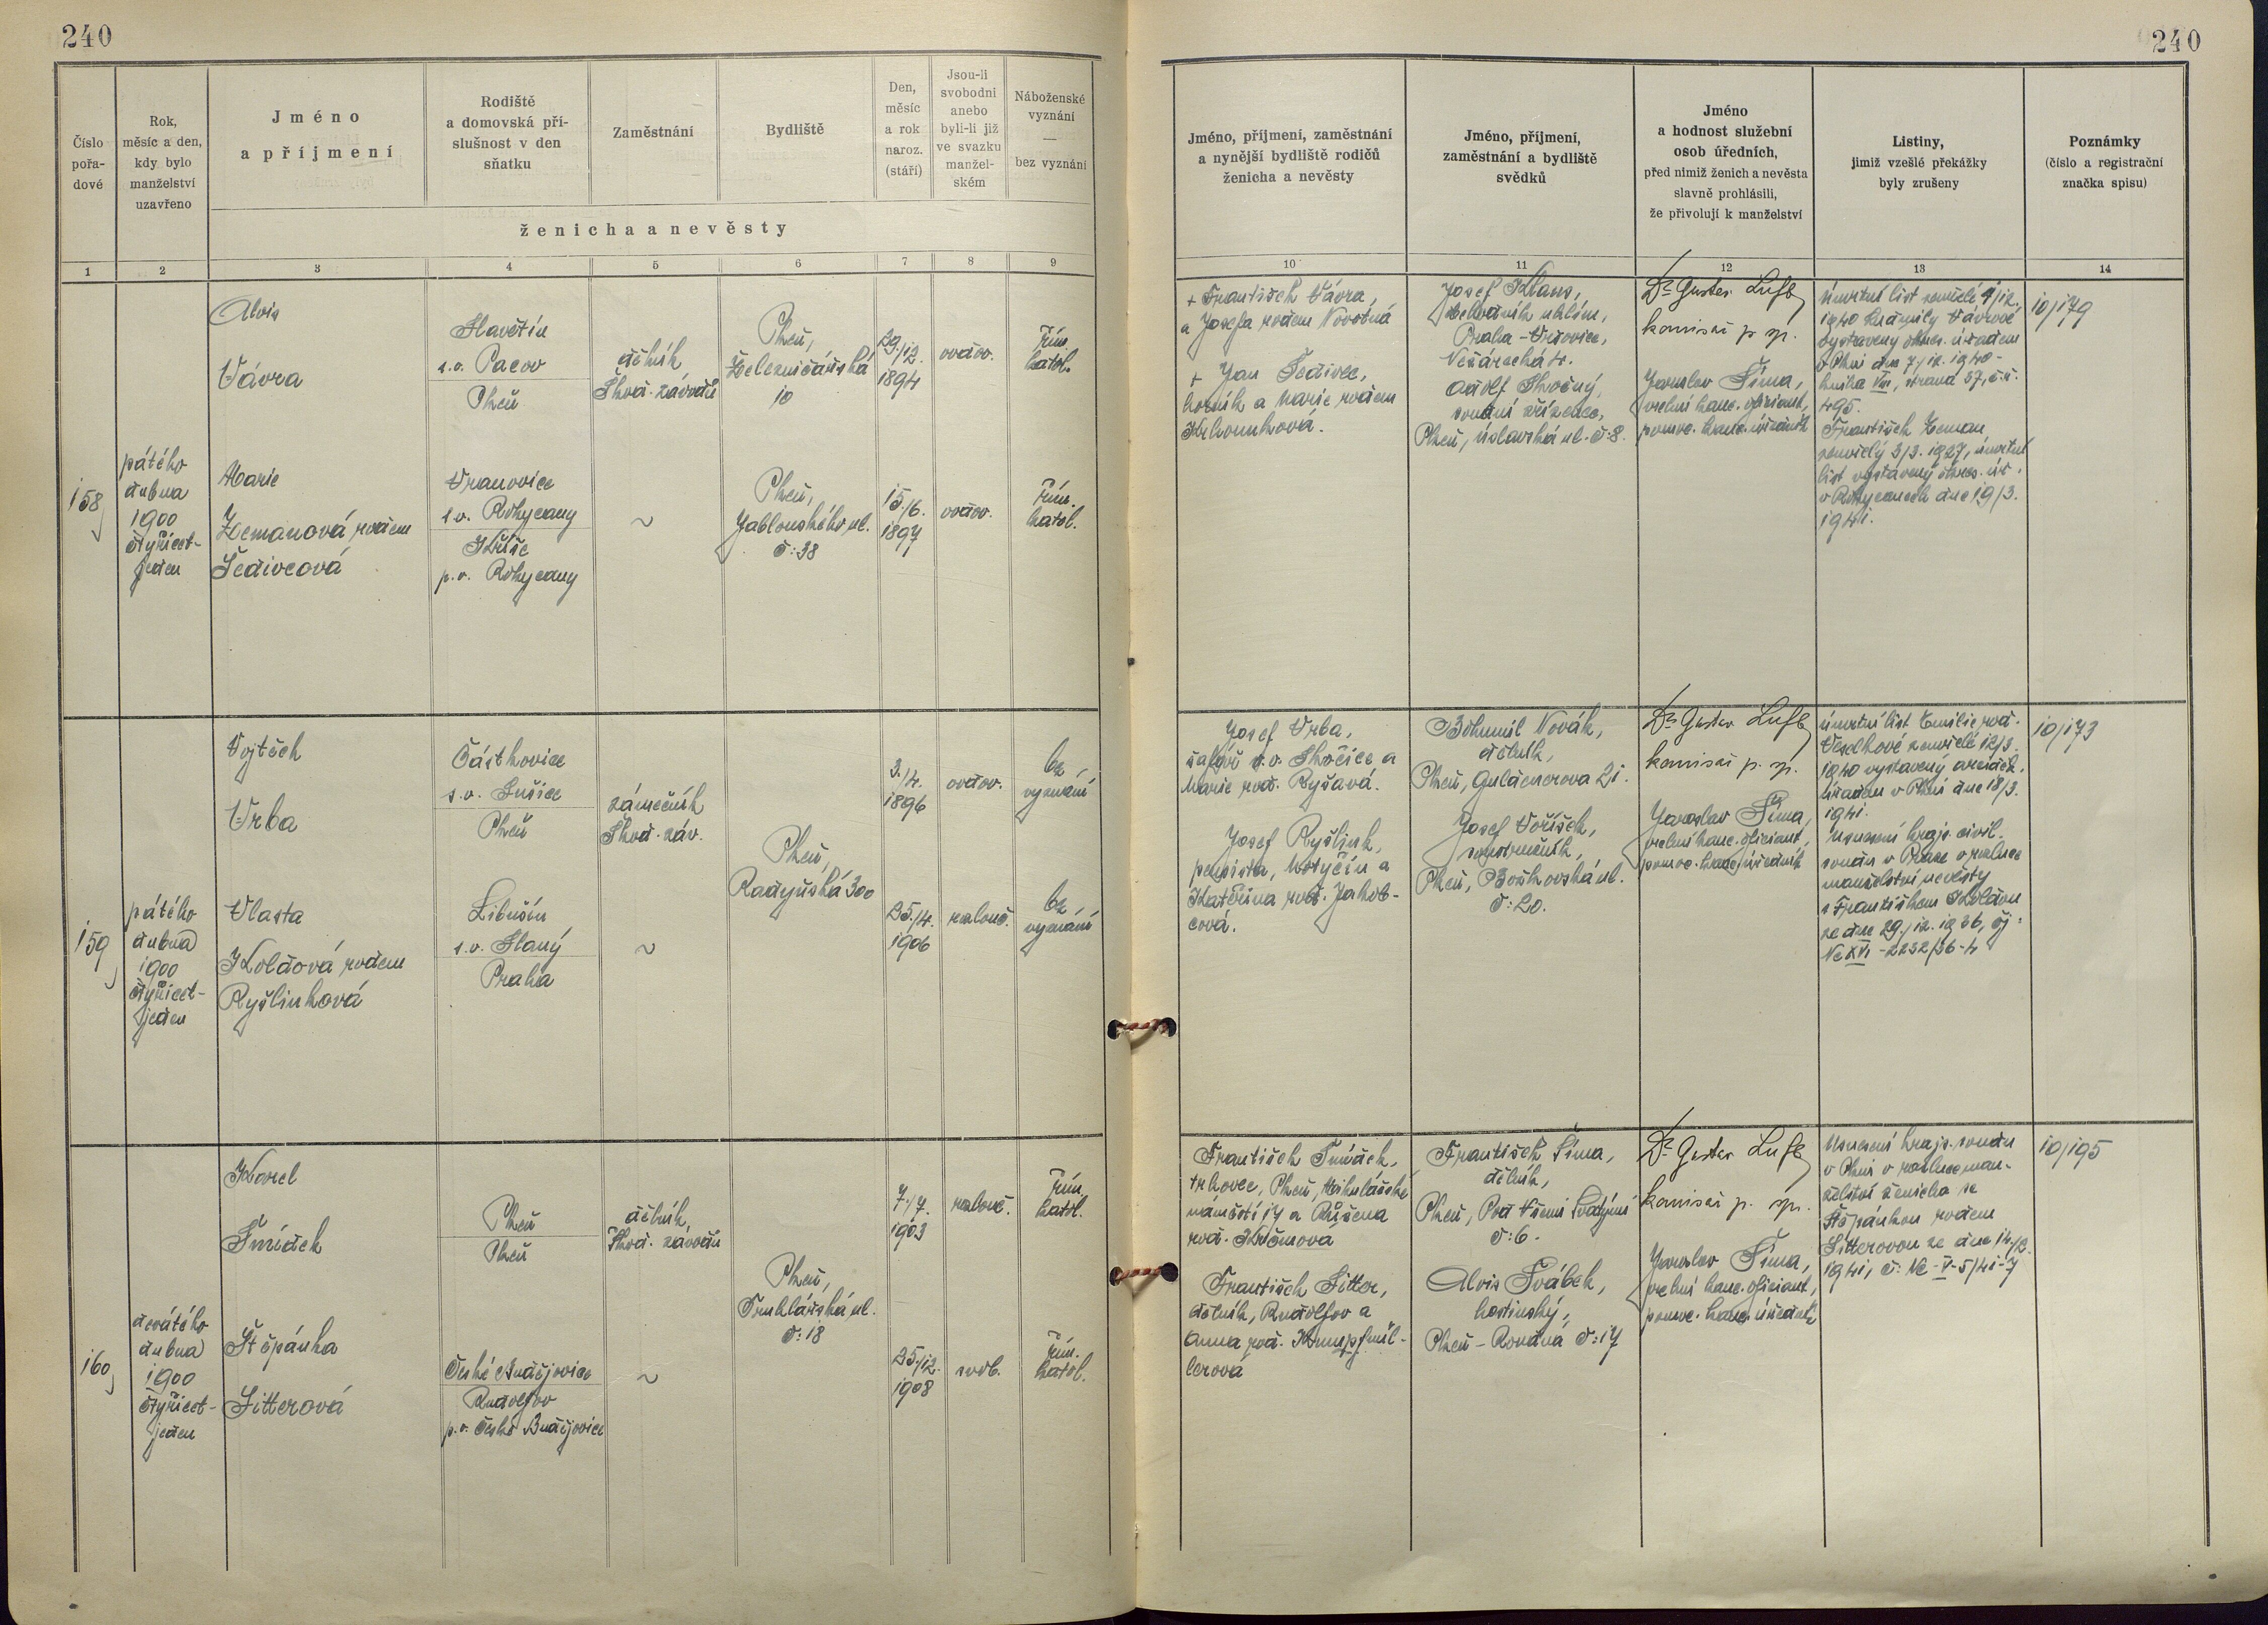 240
240
Číslo
pořa-
dové
Rok,
měsíc a den,
kdy bylo
manželství
uzavřeno
Jméno
a příjmení
Rodiště
a domovská pří-
slušnost v den
sňatku
Zaměstnání
Bydliště
Den,
měsíc
a rok
naroz.
(stáří)
Jsou-li
svobodni
anebo
byli-li již
ve svazku
manžel-
ském
Náboženské
vyznání
—
bez vyznání
ženicha a nevěsty
Jméno, příjmení, zaměstnání
a nynější bydliště rodičů
ženicha a nevěsty
Jméno, příjmení,
zaměstnání a bydliště
svědků
Jméno
a hodnost služební
osob úředních,
před nimiž ženich a nevěsta
slavně prohlásili,
že přivolují k manželství
Listiny,
jimiž vzešlé překážky
byly zrušeny
Poznámky
(číslo a registrační
značka spisu)
1 2 3 4 5 6 7 8 9
10 11 12 13 14
158
pátého
dubna
1900
čtyřicet-
jeden
Alois
Vávra
Slavětín
s.o. Pacov
Plzeň
dělník
Škod. závodů
Plzeň,
Železničářská
10
29./12.
1894
ovdov.
Řím.
katol.
Marie
Zemanová rodem
Šedivcová
Vranovice
s.o. Rokycany
Kříše
p.o. Rokycany
~
Plzeň,
Jablonského ul.
č: 38
15./6.
1897
ovdov.
Řím.
katol.
+ František Vávra,
a Josefa rodem Novotná
+ Jan Šedivec,
horník a Marie rodem
Josef Klaus,
uhlím,
Praha - Vršovice,
Adolf Skočný,
soudní zřízenec,
Plzeň, Úslavská ul. č: 8.
Dr Gustav Luft
komisař p. sp.
Jaroslav Šíma,
vrchní kanc. oficiant,
pomoc. kanc. úředník
Úmrtní list zemřelé 4/12.
1940 Ludmily Vávrové
vystavený okres. úřadem
v Plzni dne 7/12. 1940 -
kniha VIII, strana 57, č:ř:
495.
František Zeman
zemřelý 3/3. 1927, úmrtní
list vystavený okres. úř.
v Rokycanech dne 19/3.
1941.
10/179
159
pátého
dubna
1900
čtyřicet-
jeden
Vojtěch
Vrba
Částkovice
s.o. Sušice
Plzeň
zámečník
Škod. záv.
3./4.
1896
ovdov.
bez
vyznání
Plzeň,
Radyňská 300
Vlasta
Koldová rodem
Ryšlinková
Libušín
s.o. Slaný
Praha
~
25./4.
1906
rozlouč.
bez
vyznání
Josef Vrba,
šafář s.o. Skočice a
Marie roz. Ryšavá.
Josef Ryšlink,
pensista, Motyčín a
Kateřina roz. Jakob-
cová.
Bohumil Novák,
dělník,
Plzeň, Guldenerova 21.
Josef Voříšek,
soustružník,
Plzeň, Božkovská ul.
č: 20.
Dr Gustav Luft
komisař p. sp.
Jaroslav Šíma,
vrchní kanc. oficiant,
pomoc. kanc. úředník
Úmrtní list Emilie roz.
zemřelé 12/3.
1940 vystavený
úřadem v Plzni dne 18/3.
1941.
Usnesení krajs. civil.
soudu v Praze o rozluce
manželství nevěsty
s Františkem Koldou
ze dne 29./12. 1936, čj:
Nc XVI - 2232/36-4
10/173
160
devátého
dubna
1900
čtyřicet-
jeden
Karel
Šmídek
Plzeň
Plzeň
dělník
Škod. závodů
7./7.
1903
rozlouč.
Řím.
katol.
Plzeň,
Truhlářská ul.
č: 18
Štěpánka
Sitterová
České Budějovice
Rudolfov
p.o. České Budějovice
~
25./12.
1908
svob.
Řím.
katol.
František Šmídek,
trhovec, Plzeň, Mikulášské
náměstí 17 a Růžena
František Sitter,
dělník, Rudolfov a
Anna roz.
lerová
František Šíma,
dělník,
Plzeň, Pod Všemi Svatými
č: 6.
Alois Švábek,
hostinský,
Plzeň - Roudná č: 17
Dr Gustav Luft
komisař p. sp.
Jaroslav Šíma,
vrchní kanc. oficiant,
pomoc. kanc. úředník
Usnesení krajs. soudu
v Plzni o rozluce man-
želství ženicha se
Štěpánkou rodem
Sitterovou ze dne 14./2.
1941, č: Nc - V - 5/41-7
10/195